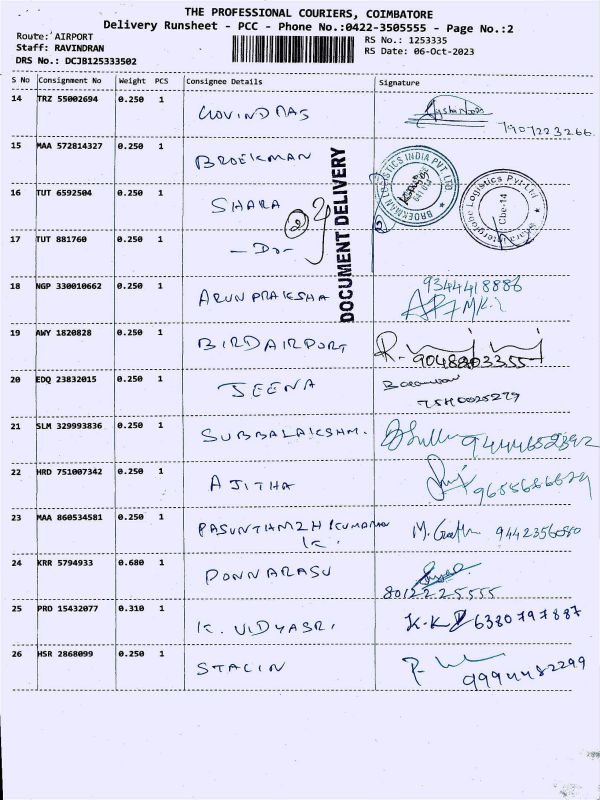 THE PROFESSIONAL COURIERS, COIMBATORE
Delivery Runsheet - PCC - Phone No.:0422-3505555 - Page No.:2
Route: AIRPORT
RS No.: 1253335
Staff: RAVINDRAN
RS Date: 06-Oct-2023
DRS No.: DCJB125333502
S No Consignment No Weight PCS Consignee Details Signature
14 TRZ 55002694 0.250 1 GOVINDDAS
7907223266
15 MAA 572814327 0.250 1 BROEKMAN
BROEKMAN LOGISTICS INDIA PVT. LTD
16 TUT 6592504 0.250 1 SHARA
Interglobe Logistics Pvt Ltd
Cbe-14
DOCUMENT DELIVERY
17 TUT 881760 0.250 1 -Do-
18 NGP 330010662 0.250 1 ARUN PRAKSHA
9344418886
19 AWY 1820828 0.250 1 BIRDAIRPORT
R.
9048203355
20 EDQ 23832015 0.250 1 JEENA
21 SLM 329993836 0.250 1 SUBBALAKSHM. 9444652892
22 HRD 751007342 0.250 1 AJITHA
23 MAA 860534581 0.250 1 PASUNTHAMZH KUMARAN M. Geetha 9442356080
K.
24 KRR 5794933 0.680 1 PONNARASU
8012225555
25 PRO 15432077 0.310 1 K. VIDYASRI K-K 6380797887
26 HSR 2868099 0.250 1 STALIN
9994482299